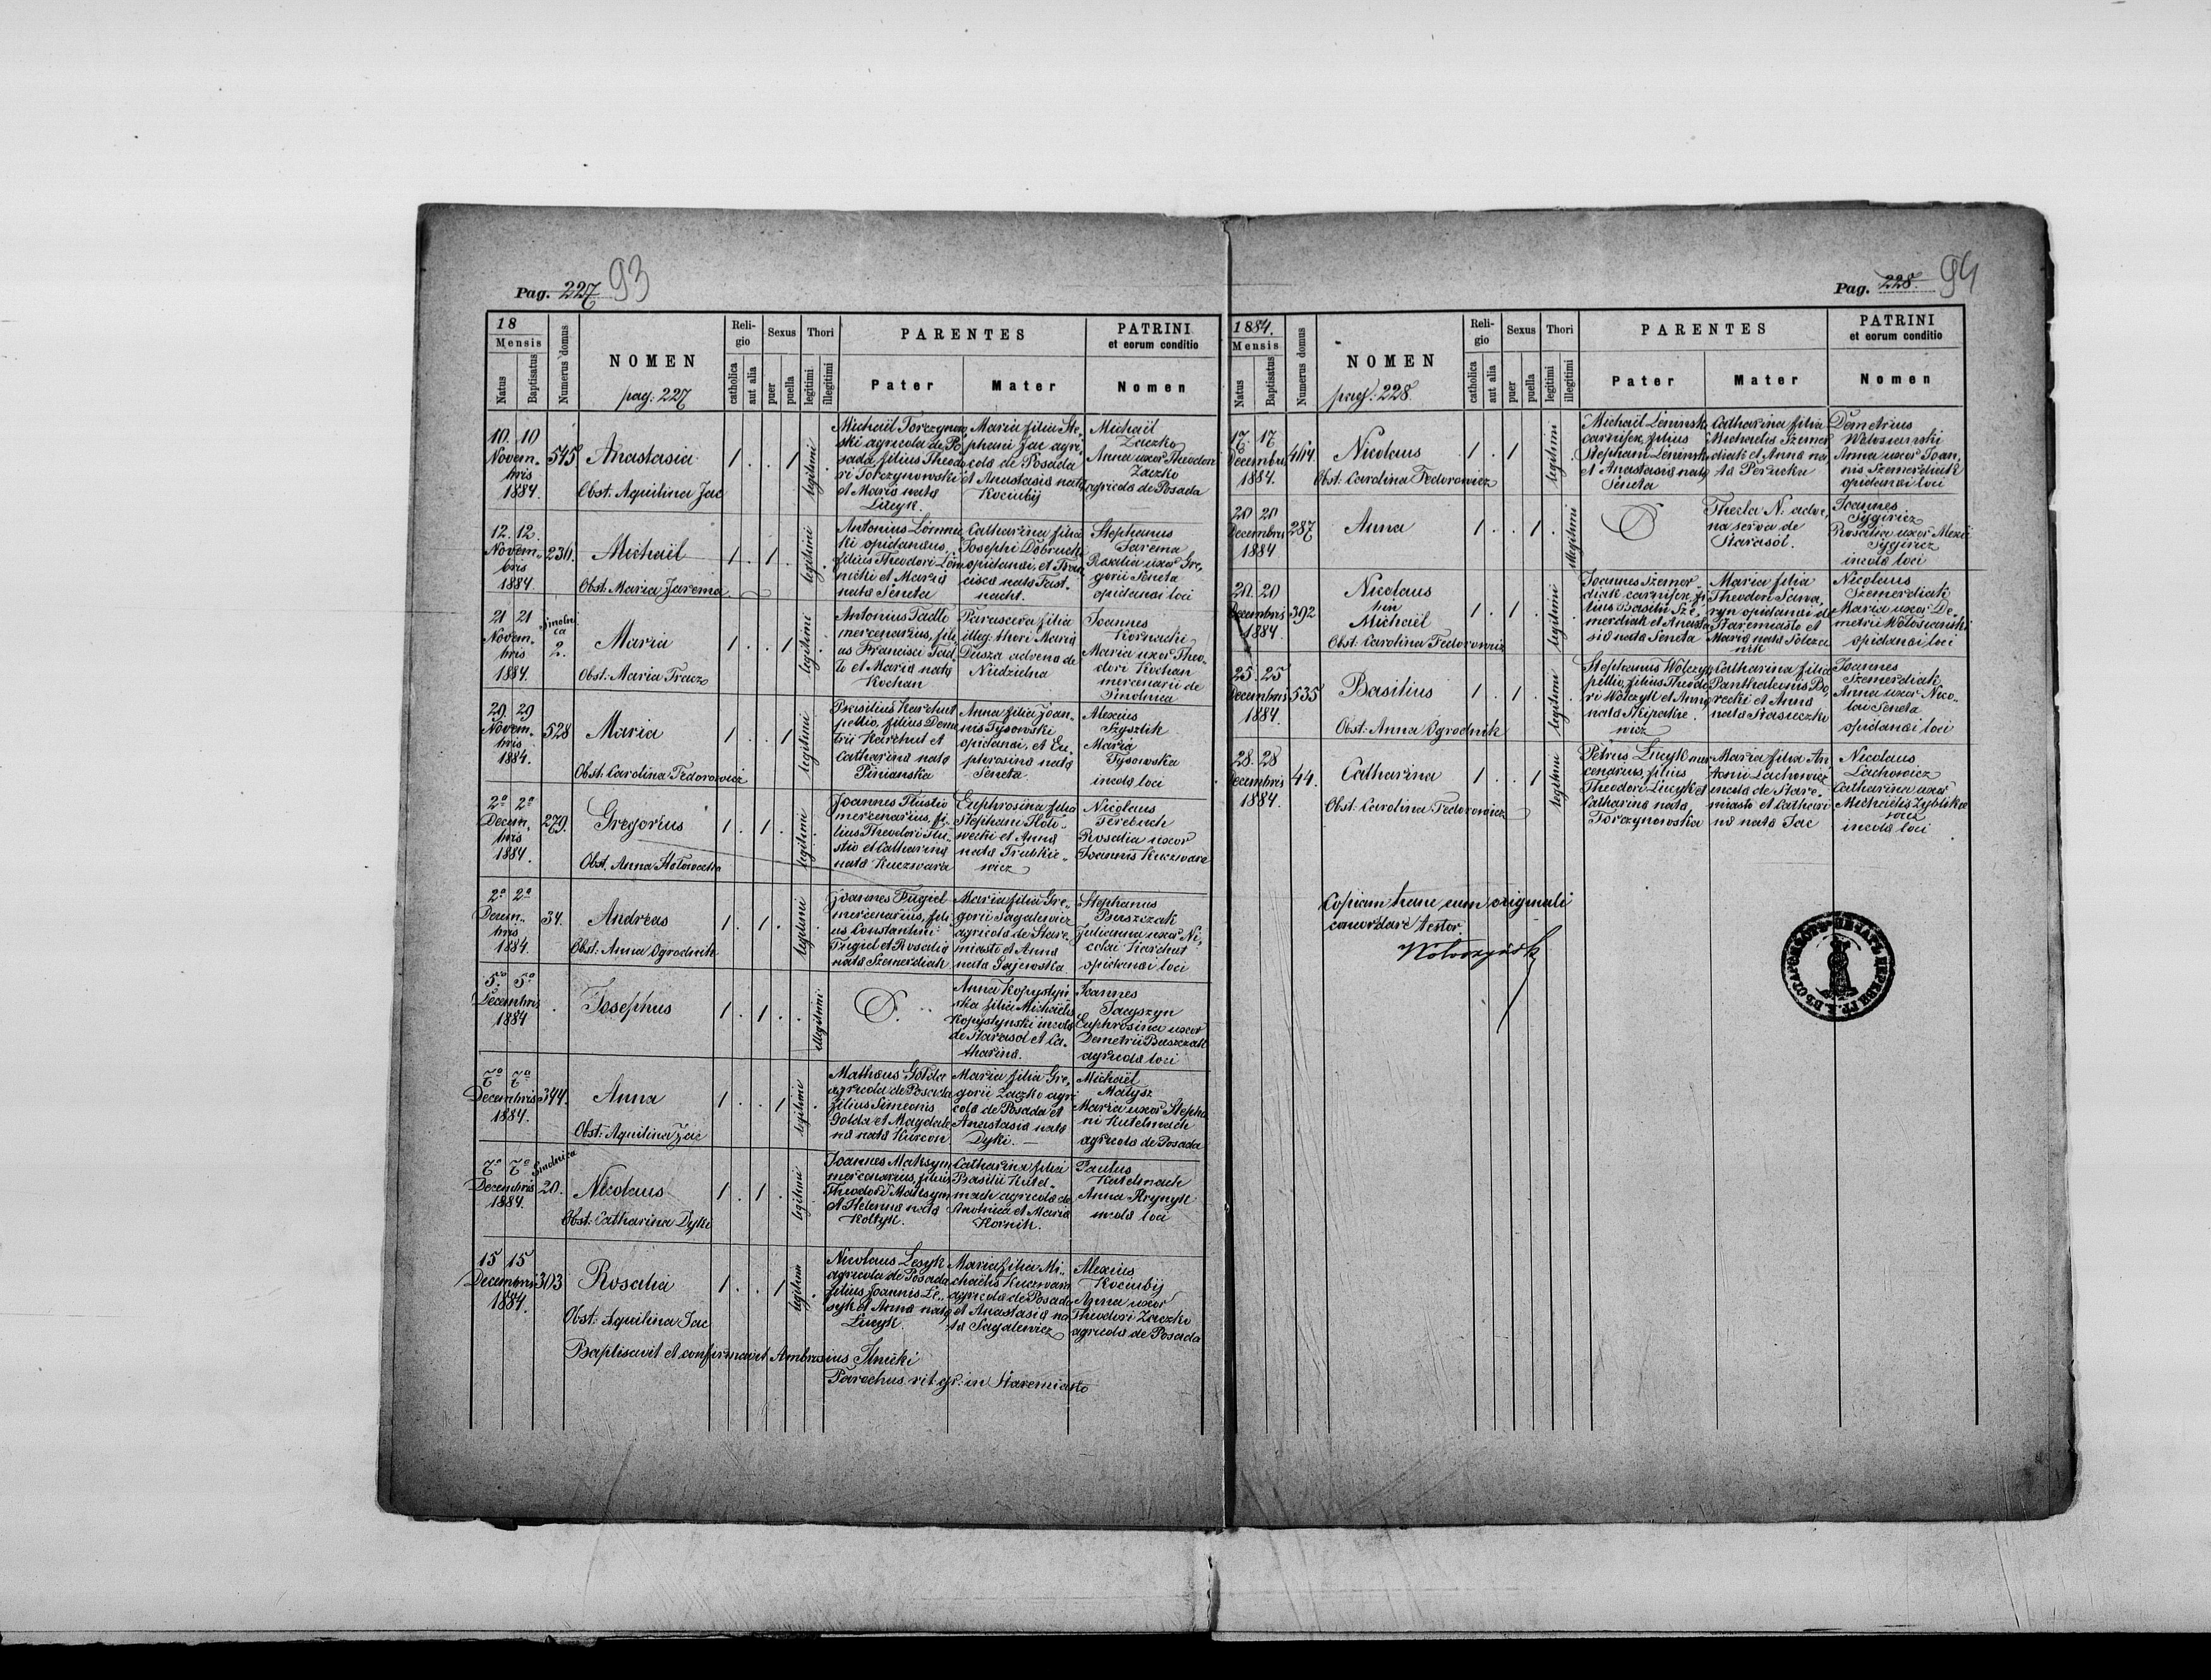 Pag. 227 93
18
Mensis
Natus
Baptisatus
Numerus domus
NOMEN
pag: 227
Religio
catholica
aut alia
Sexus
puer
puella
Thori
legitimi
illegitimi
PARENTES
Pater
Mater
PATRINI
et eorum conditio
Nomen
10. 10
Novem-
bris
1884.
545
Anastasia
Obst. Aquilina Jac
1 . . 1
legitimi
Michaël Torczynow
ski agricola de Po
sada filius Theodo
ri Torczynowski
et Maria nata
Lucyk.
Maria filia Ste-
phani Jac agri-
cola de Posada
et Anastasia nata
Kociubij
Michaël
Zaczko
Anna uxor Theodori
Zaczko
agricola de Posada
12. 12.
Novem-
bris
1884.
236.
Michaël
Obst. Maria Jarema
1 . 1 .
legitimi
Antonius Lomnic
ki opidanus,
filius Theodori Lom
nicki et Maria
nata Seneta
Catharina filia
Josephi Dobruch
opidanai, et Fran
cisca nata Fast-
nacht.
Stephanus
Jarema
Rosalia uxor Gre-
gorii Seneta
opidanai loci
21 21
Novem-
bris
1884.
Smolni
ca
2.
Maria
Obst. Maria Tracz
1 . . 1
legitimi
Antonius Tadle
mercenarius, fili
us Francisci Tad-
le et Maria nata
Kochan
Parasceva filia
illeg. thori Maria
Dusza advena de
Niedzielna
Joannes
Kornacki
Maria uxor Theo-
dori Kochan
mercenarii de
Smolnica
29 29
Novem-
bris
1884.
528
Maria
Obst. Carolina Fedorowicz
1 . . 1
legitimi
Basilius Karchut
pellio, filius Deme
trii Karchut et
Catharina nata
Pinianska
Anna filia Joan-
nis Tysowski
opidanai, et Eu-
phrosina nata
Seneta
Alexius
Szyszlik
Maria
Tysowska
incola loci
2º 2º
Decem-
bris
1884.
279.
Gregorius
Obst. Anna Hołowecka
1 . 1 .
legitimi
Joannes Tlustio
mercenarius, fi-
lius Theodori Tlu-
stio et Catharina
nata Kuczwara
Euphrosina filia
Stephani Hoło-
wecki et Anna
nata Trubkie-
wicz
Nicolaus
Terebuch
Rosalia uxor
Joannis Kuczwara
2º 2º
Decem-
bris
1884.
34.
Andreas
Obst. Anna Ogrodnik
1 . 1 .
legitimi
Joannes Fugiel
mercenarius, fili
us Constantini
Fugiel et Rosalia
nata Szemerdiak
Maria filia Gre-
gorii Sagalewicz
agricola de Stare-
miasto et Anna
nata Gajewska
Stephanus
Buszczak
Julianna uxor Ni-
colai Karchut
opidanai loci
5º 5º
Decembris
1884
.
Josephus
1 . 1 . .
illegitimi
Anna Kopystyń
ska filia Michaëlis
Kopystynski incola
de Starasol et Ca-
tharina.
Joannes
Jacyszyn
Euphrosina uxor
Demetrii Buszczak
agricola loci
7º 7º
Decembris
1884.
344.
Anna
Obst. Aquilina Jac
1 . . 1
legitimi
Matheus Golda
agricola de Posada
filius Simeonis
Golda et Magdale
na nata Kurcon
Maria filia Gre-
gorii Zaczko agri
cola de Posada et
Anastasia nata
Dyki. —
Michaël
Matysz
Maria uxor Stepha
ni Kutelmach
agricola de Posada
7º 7º
Decembris
1884.
Smolnica
20.
Nicolaus
Obst. Catharina Dyki
1 . 1 .
legitimi
Joannes Maksym
mercenarius filius
Theodori Maksym
et Helenna nata
Koltyk.
Catharina filia
Basilii Kutel-
mach agricola de
Smolnica et Maria
Kornik.
Paulus
Kutelmach
Anna Hrynyk
incola loci
15 15
Decembris
1884.
303
Rosalia
Obst. Aquilina Jac
1 . . 1
legitimi
Nicolaus Lesyk
agricola de Posada
filius Joannis Le-
syk et Anna nata
Lucyk.
Maria filia Mi-
chaëlis Kuczwara
agricola de Posada
et Anastasia na
ta Sagalewicz
Alexius
Kociubij
Anna uxor
Theodori Zaczko
agricola de Posada
Baptisavit et confirmavit Ambrosius Ilnicki
Parochus rit. gr. in Staremiasto
Pag. 228. 94
1884.
Mensis
Natus
Baptisatus
Numerus domus
NOMEN
pag: 228.
Religio
catholica
aut alia
Sexus
puer
puella
Thori
legitimi
illegitimi
PARENTES
Pater
Mater
PATRINI
et eorum conditio
Nomen
17. 17
Decembris
1884.
464.
Nicolaus
Obst. Carolina Fedorowicz
1 . 1
legitimi
Michaël Leninski
carnifex, filius
Stephani Leninski
et Anastasia nata
Seneta
Catharina filia
Michaelis Szemer
diak et Anna na
ta Perucka
Demetrius
Wolosianski
Anna uxor Joan-
nis Szemerdiak
opidanai loci
20 20
Decembris
1884
287
Anna
1 . . 1 .
illegitimi
Thecla N. adve-
na serva de
Starasól.
Joannes
Sygiricz
Rosalia uxor Alexii
Sygiricz
incola loci
20. 20
Decembris
1884.
392
Nicolaus
bin
Michaël
Obst. Carolina Fedorowicz
1 . 1 .
legitimi
Joannes Szemer-
diak carnifex, fi
lius Basilii Sze-
merdiak et Anasta
sia nata Seneta
Maria filia
Theodori Sawa-
ryn opidanai de
Staremiasto et
Maria nata Solcza
nik
Nicolaus
Szemerdiak
Maria uxor De-
metrii Wolosianski
opidanai loci
25. 25
Decembris
1884.
535
Basilius
Obst. Anna Ogrodnik
1 . 1 .
legitimi
Stephanus Wolczyk
pellio, filius Theodo
ri Wolczyk et Anna
nata Skipakie-
wicz
Catharina filia
Panthaleonis Bo-
recki et Anna
nata Stasieczko
Joannes
Szemerdiak,
Anna uxor Nico-
lai Seneta
opidanai loci
28. 28
Decembris
1884.
44.
Catharina
Obst. Carolina Fedorowicz
1 . . 1
legitimi
Petrus Lucyk mer
cenarius, filius
Theodori Lucyk et
Catharina nata
Torczynowska
Maria filia An
tonii Lachowicz
incola de Stare-
miasto et Cathari
na nata Jac
Nicolaus
Lachowicz
Catharina uxor
Michaëlis Zyblikie
wicz
incola loci
Copiam hanc cum originali
concordare testor.